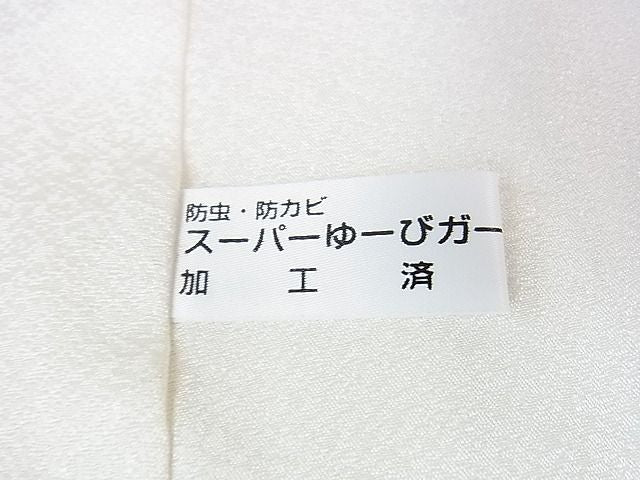 防虫・防カビ
スーパーゆーびガー
加工済